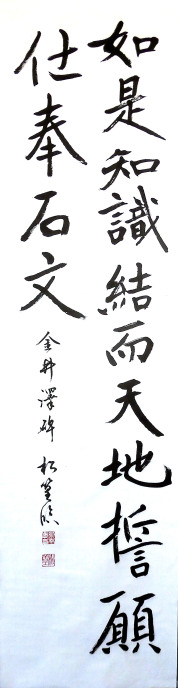 如是知識結而天地誓願
仕奉石文
金井澤碑 松篁臨